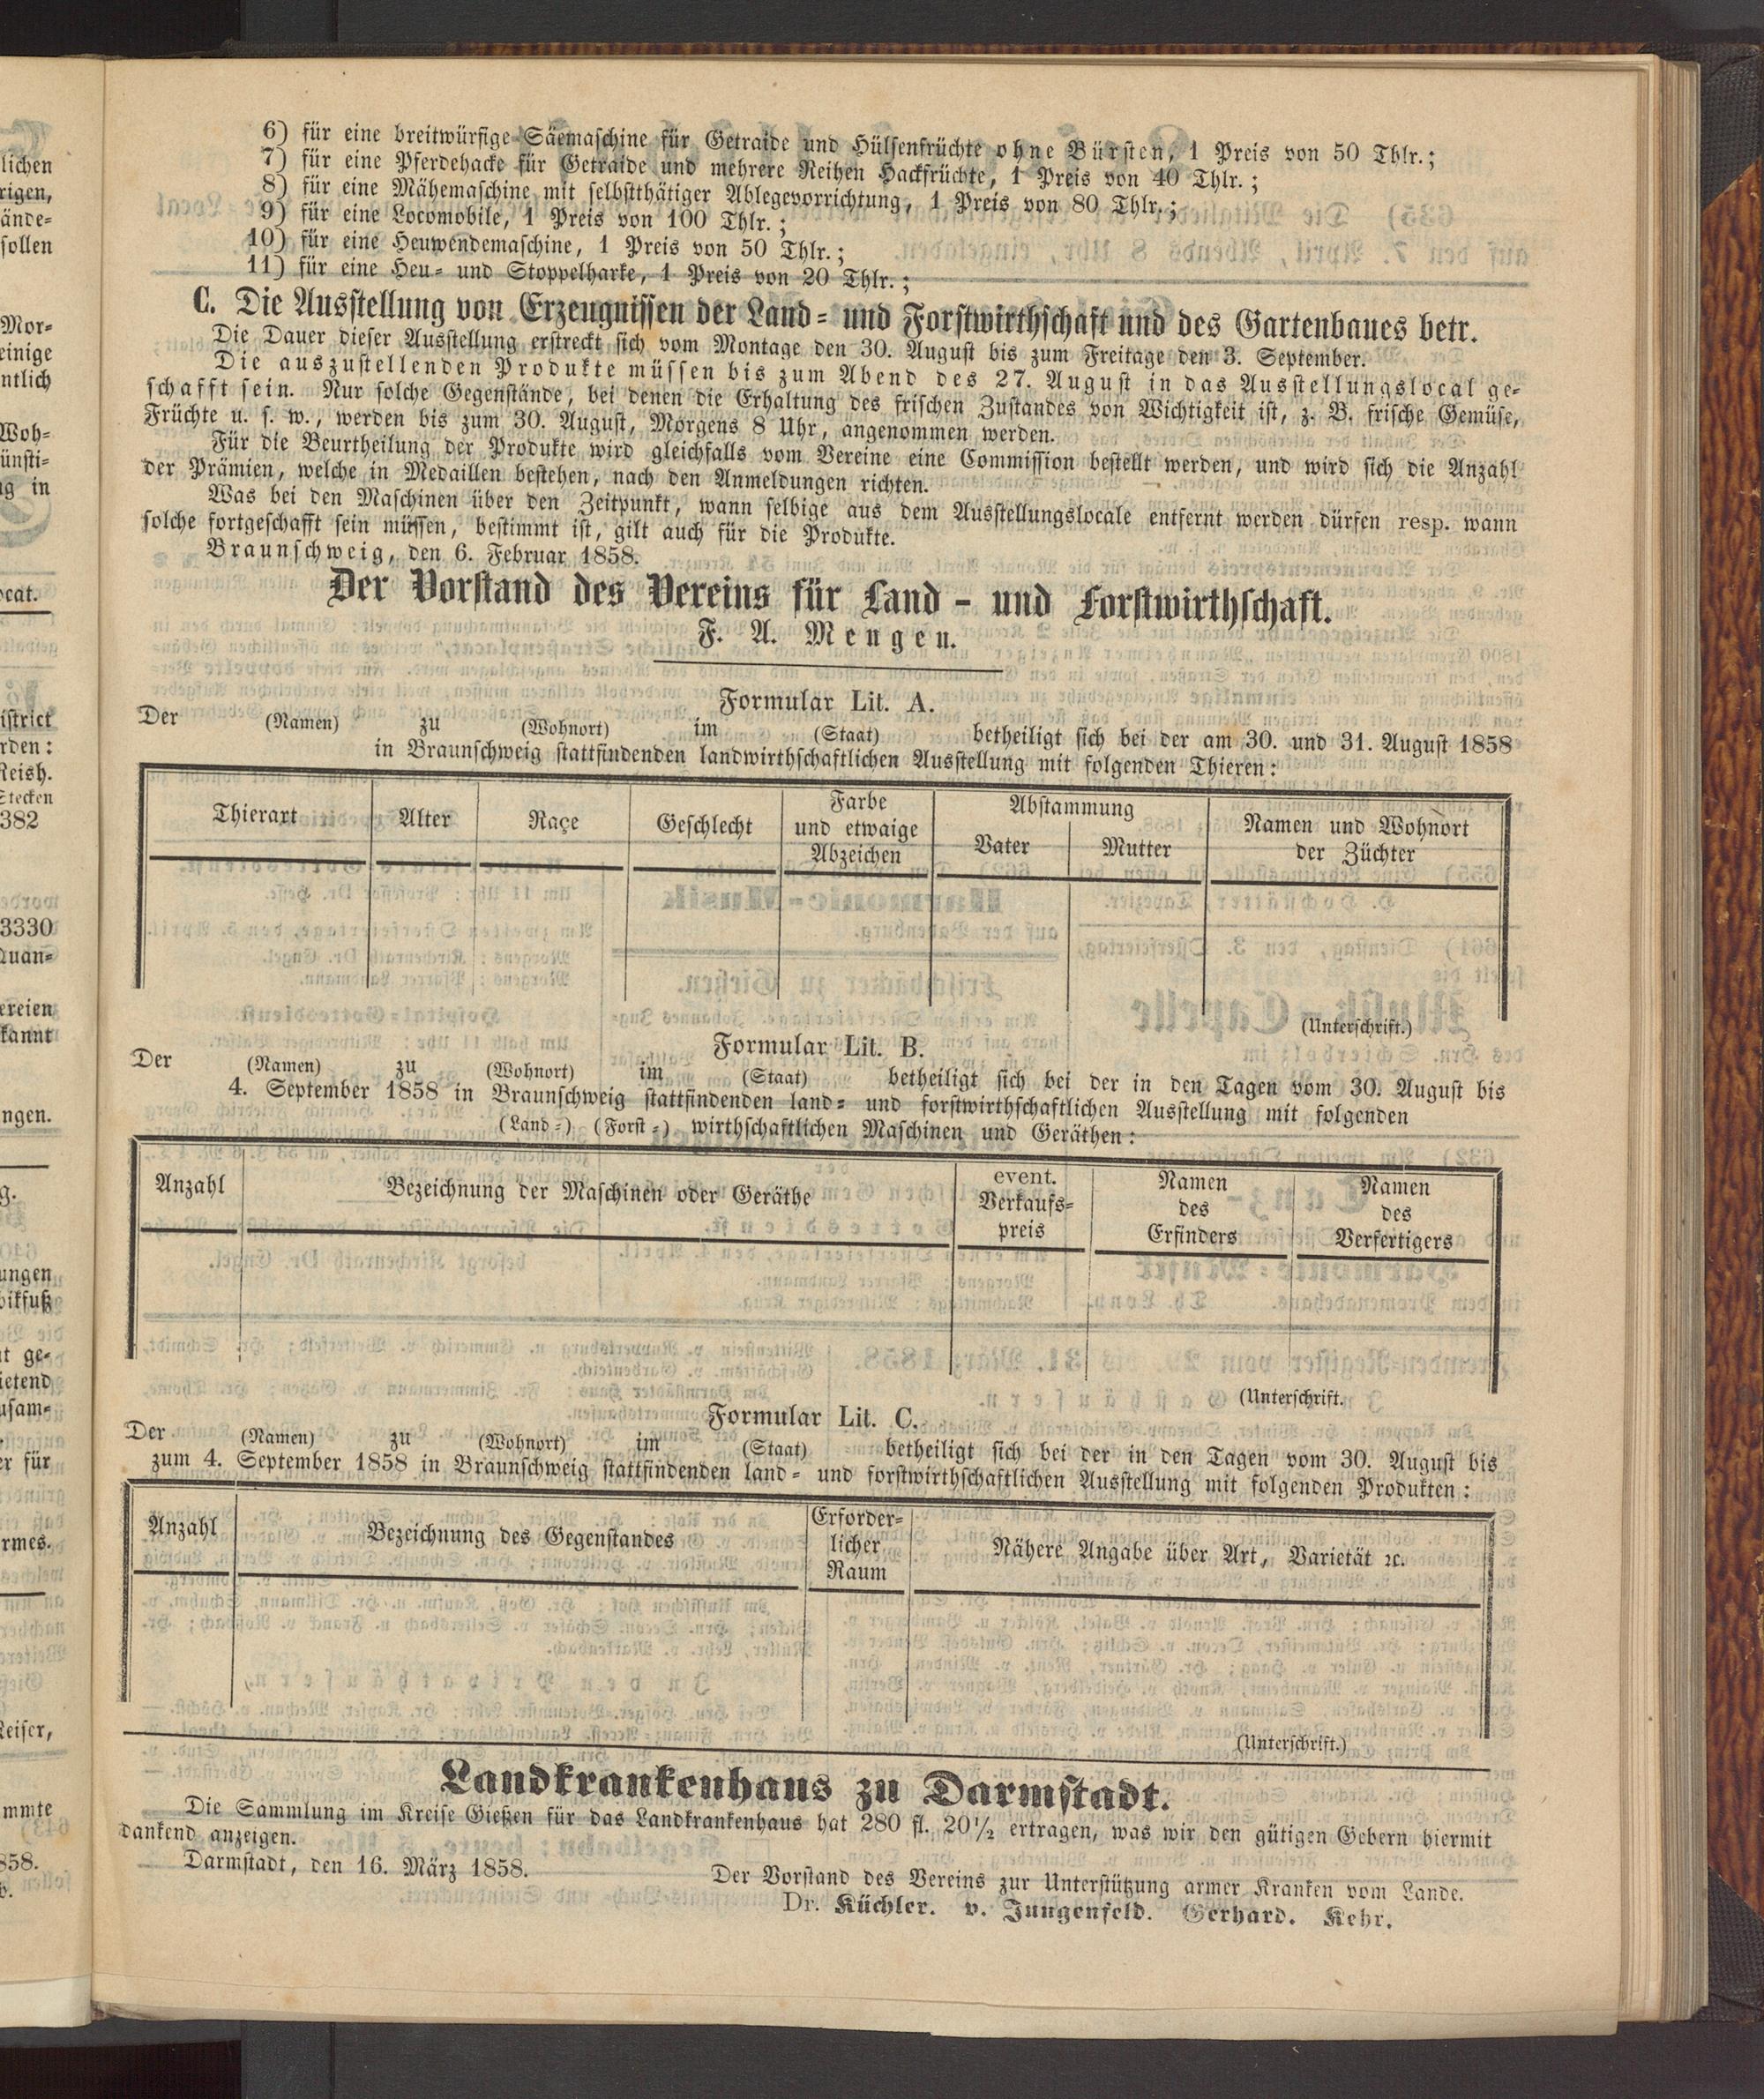 6) für eine breitwürfige Säemaschine für Getraide und Hülsenfrüchte ohne Bürsten, 1 Preis von 50 Thlr.;
7) für eine Pferdehacke für Getraide und mehrere Reihen Hackfrüchte, 1 Preis von 40 Thlr.;
8) für eine Mähemaschine mit selbstthätiger Ablegevorrichtung, 1 Preis von 80 Thlr.;
9) für eine Locomobile, 1 Preis von 100 Thlr.;
10) für eine Heuwendemaschine, 1 Preis von 50 Thlr.;
11) für eine Heu- und Stoppelharke, 1 Preis von 20 Thlr.;
C. Die Ausstellung von Erzeugnissen der Land- und Forstwirthschaft und des Gartenbaues betr.
Die Dauer dieser Ausstellung erstreckt sich vom Montage den 30. August bis zum Freitage den 3. September.
Die auszustellenden Produkte müssen bis zum Abend des 27. August in das Ausstellungslocal ge-
schafft sein. Nur solche Gegenstände, bei denen die Erhaltung des frischen Zustandes von Wichtigkeit ist, z. B. frische Gemüse,
Früchte u. s. w., werden bis zum 30. August, Morgens 8 Uhr, angenommen werden.
Für die Beurtheilung der Produkte wird gleichfalls vom Vereine eine Commission bestellt werden, und wird sich die Anzahl
der Prämien, welche in Medaillen bestehen, nach den Anmeldungen richten.
Was bei den Maschinen über den Zeitpunkt, wann selbige aus dem Ausstellungslocale entfernt werden dürfen resp. wann
solche fortgeschafft sein müssen, bestimmt ist, gilt auch für die Produkte.
Braunschweig, den 6. Februar 1858.
Der Vorstand des Vereins für Land- und Forstwirthschaft.
F. A. Mengen.
Formular Lit. A.
Der (Namen) zu (Wohnort) im (Staat) betheiligt sich bei der am 30. und 31. August 1858
in Braunschweig stattfindenden landwirthschaftlichen Ausstellung mit folgenden Thieren:
Thierart Alter Raçe Geschlecht Farbe und etwaige Abzeichen Abstammung Vater Mutter Namen und Wohnort der Züchter
(Unterschrift.)
Formular Lit. B.
Der (Namen) zu (Wohnort) im (Staat) betheiligt sich bei der in den Tagen vom 30. August bis
4. September 1858 in Braunschweig stattfindenden land- und forstwirthschaftlichen Ausstellung mit folgenden
(Land-) (Forst-) wirthschaftlichen Maschinen und Geräthen:
Anzahl Bezeichnung der Maschinen oder Geräthe event. Verkaufs-preis Namen des Erfinders Namen des Verfertigers
(Unterschrift.
Formular Lit. C.
Der (Namen) zu (Wohnort) im (Staat) betheiligt sich bei der in den Tagen vom 30. August bis
zum 4. September 1858 in Braunschweig stattfindenden land- und forstwirthschaftlichen Ausstellung mit folgenden Produkten:
Anzahl Bezeichnung des Gegenstandes Erforder-licher Raum Nähere Angabe über Art, Varietät ꝛc.
(Unterschrift.)
Landkrankenhaus zu Darmstadt.
Die Sammlung im Kreise Gießen für das Landkrankenhaus hat 280 fl. 20½ ertragen, was wir den gütigen Gebern hiermit
dankend anzeigen.
Darmstadt, den 16. März 1858.
Der Vorstand des Vereins zur Unterstützung armer Kranken vom Lande.
Dr. Küchler. v. Jungenfeld. Gerhard. Kehr.